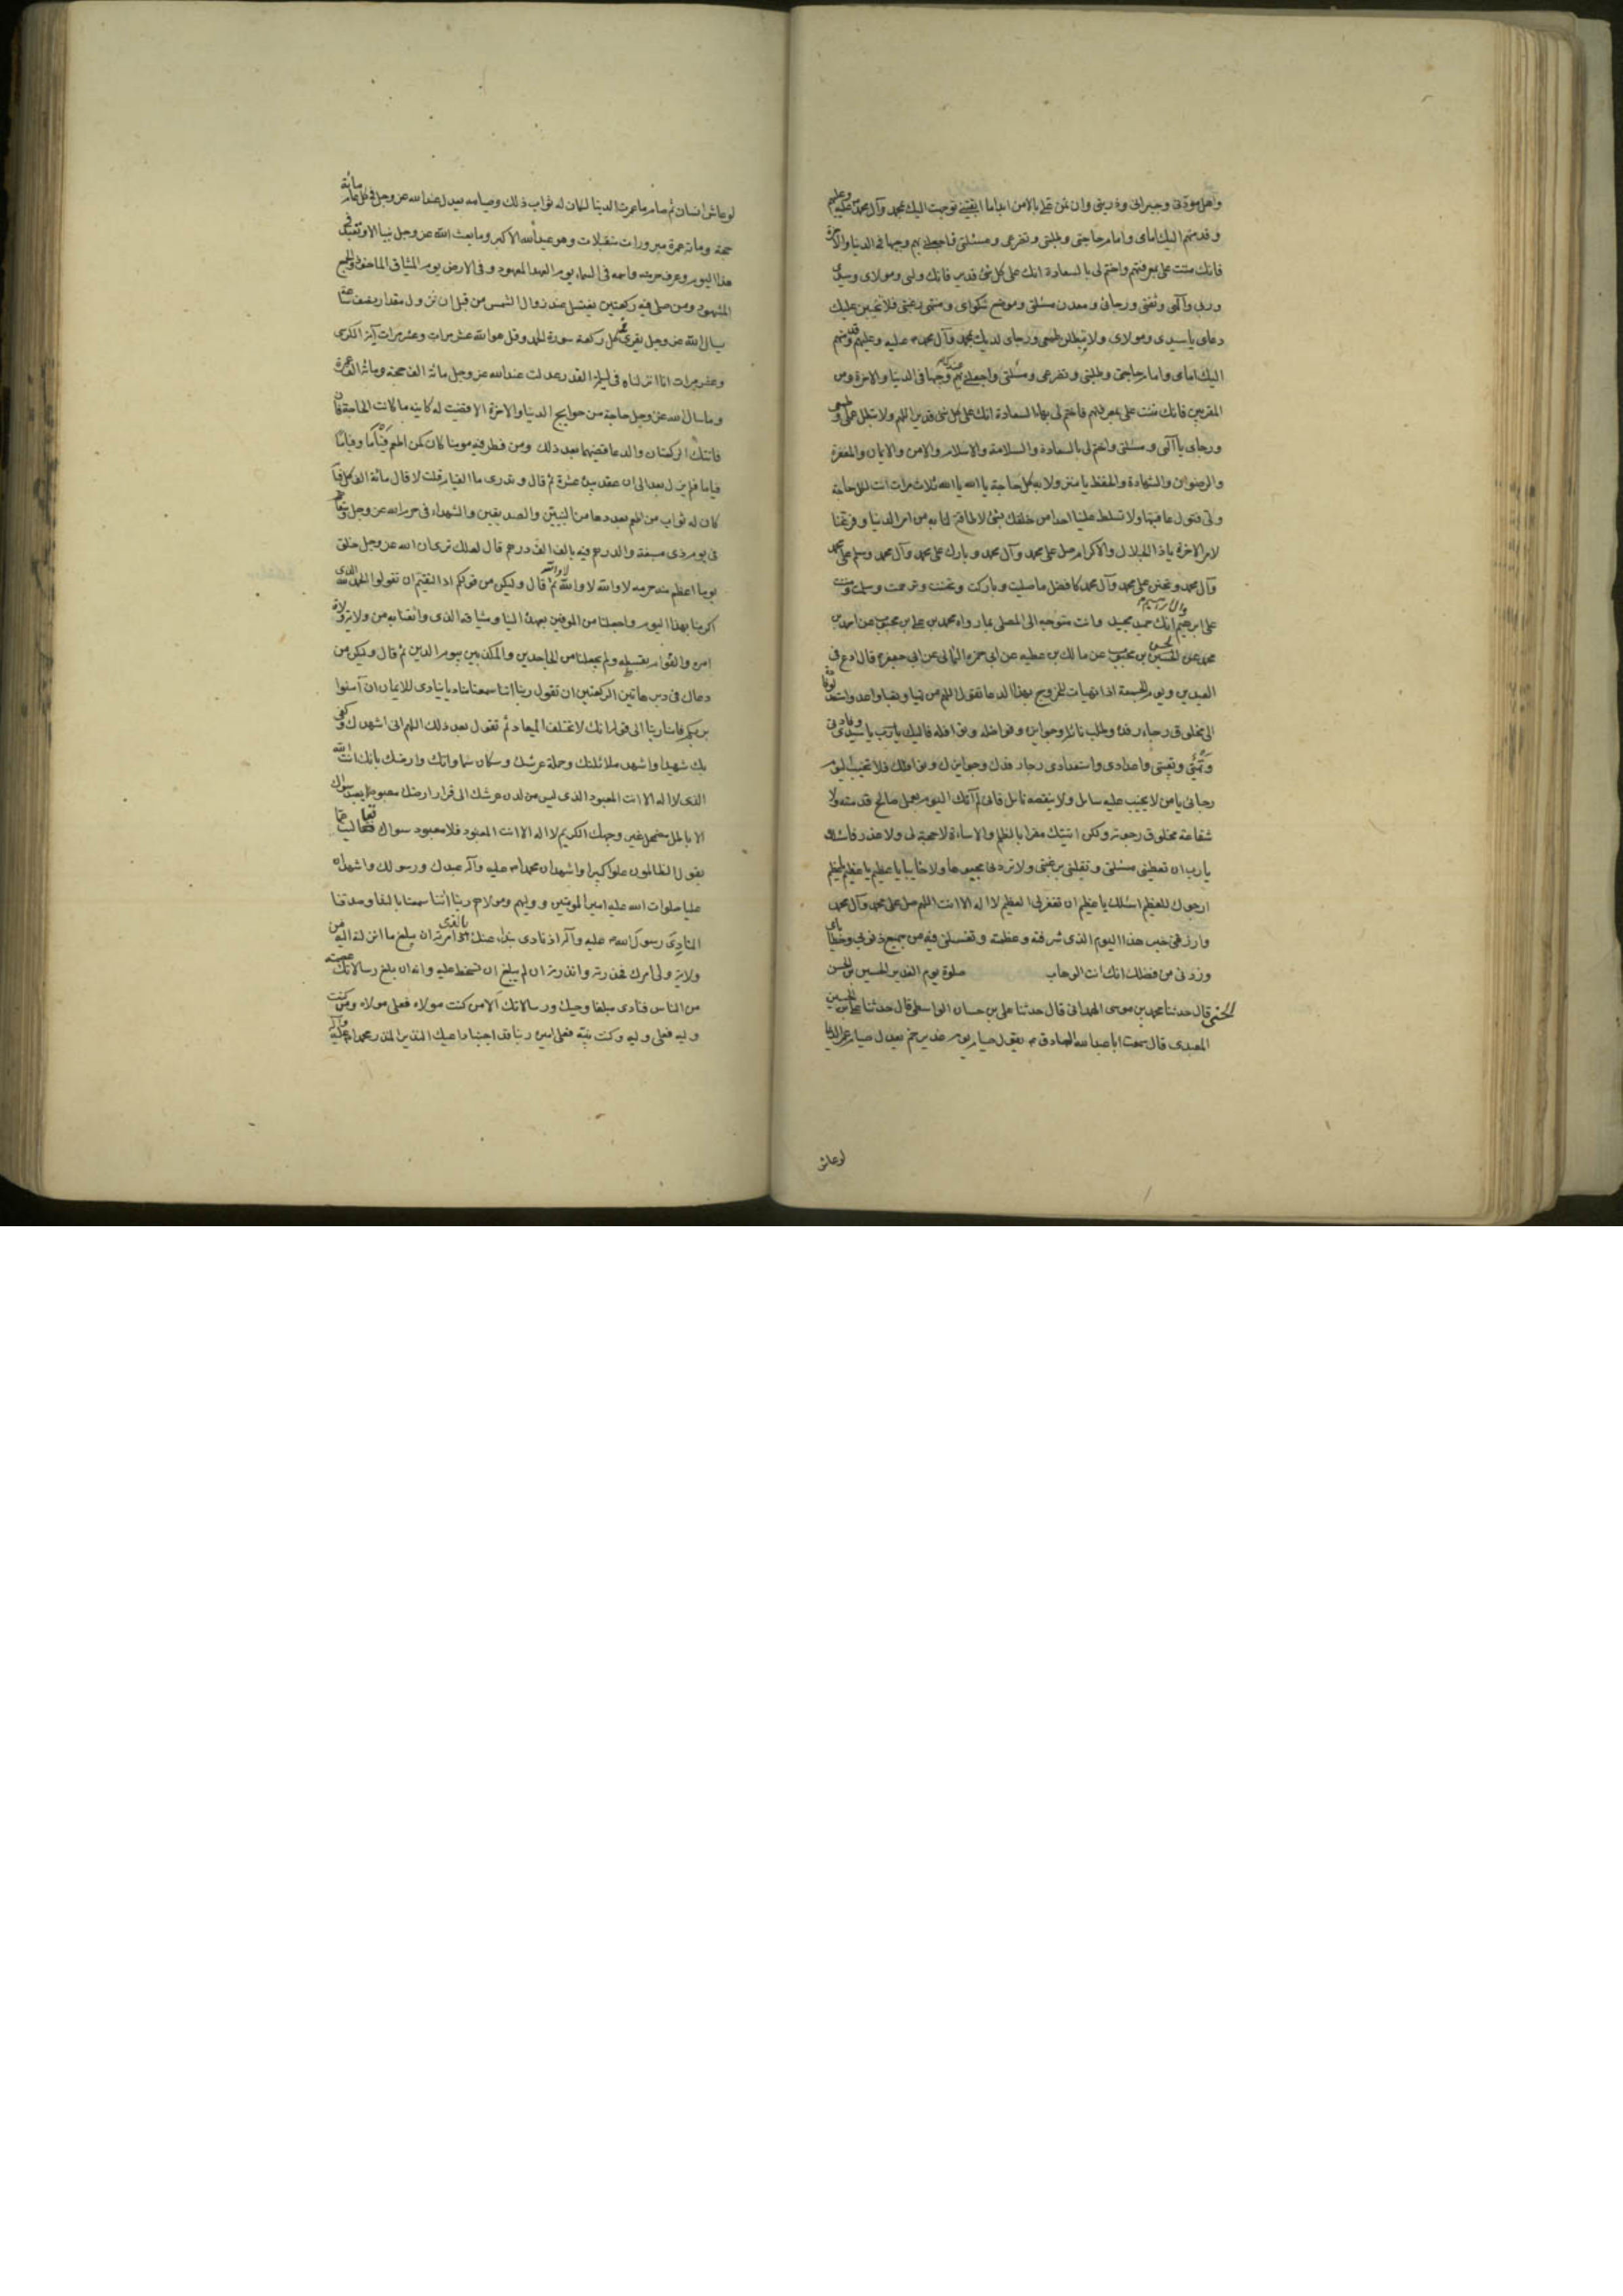 واهل مودتى وجيرانى وذريتى وان تمن على بالامن ابدا ما ابقيتنى توجهت اليك بمحمد وآل محمد عليه وعليهم
وقدمتهم اليك امامى وامام حاجتى وطلبتى وتضرعى ومسئلتى فاجعلنى بهم وجيها فى الدنيا والاخرة
فانك مننت على بمعرفتهم واختم لى بالسعادة انك على كل شئ قدير فانك وليى ومولاى وسيدى
وربى وآلهى وثقتى ورجائى ومعدن مسئلتى وموضع شكواى ومنتهى رغبتى فلا يخيبن عليك
دعاى يا سيدى ومولاى ولا تبطلن طمعى ورجاى لديك بمحمد وآل محمد ص عليه وعليهم قدمتهم
اليك امامى وامام حاجتى وطلبتى وتضرعى ومسئلتى واجعلنى بهم عندك وجيها فى الدنيا والاخرة ومن
المقربين فانك مننت على بمعرفتهم فاختم لى بها بالسعادة انك على كل شئ قدير اللهم ولا تبطل عملى وطمعى
ورجاى يا آلهى ومسئلتى واختم لى بالسعادة والسلامة والاسلام والامن والايمان والمغفرة
والرضوان والشهادة والحفظ يا منزولا به كل حاجة يا الله يا الله ثلاث مرات انت لكل حاجة
ولى فتول عافيتها ولا تسلط علينا احدا من خلقك بشئ لا طاقة لنا به من امر الدنيا وفرغنا
لامر الاخرة يا ذا الجلال والاكرام صل على محمد وآل محمد وبارك على محمد وآل محمد وسلم على محمد
وآل محمد وتحنن على محمد وآل محمد كافضل ما صليت وباركت وتحننت وترحمت وسلمت ومننت
على ابرهيم وآل ابرهيم انك حميد مجيد وانت متوجه الى المصلى بما رواه محمد بن على بن محبوب عن احمد بن
محمد عن الحسن بن محبوب عن مالك بن عطيه عن ابى حمزه الثمالى عن ابى جعفر ع قال ادع فى
العيدين ويوم الجمعة اذا تهيات للخروج بهذا الدعا تقول اللهم من تهيا وتعبا واعد واستعد لوفادة
الى مخلوق رجاء رفده وطلب نائله وجوايزه وفواضله ونوافله فاليك يا رب يا سيدى وفادتى
وتهيئى وتعبئتى واعدادى واستعدادى رجاء رفدك وجوايزك ونوافلك فلا تخيب اليوم
رجائى يا من لا يخيب عليه سايل ولا ينقصه نايل فانى لم آتك اليوم بعمل صالح قدمته ولا
شفاعة مخلوق رجوته ولكن اتيتك مقرا بالظلم والاساءة لا حجة لى ولا عذر فاسئلك
يا رب ان تعطينى مسئلتى وتقلبنى برغبتى ولا تردنى مجبوها ولا خايبا يا عظيم يا عظيم يا عظيم
ارجوك للعظيم اسئلك يا عظيم ان تغفر لى العظيم لا اله الا انت اللهم صل على محمد وآل محمد
وارزقنى خير هذا اليوم الذى شرفته وعظمته وتغسلنى فيه من جميع ذنوبى وخطاياى
وزدنى من فضلك انك انت الوهاب صلوة يوم الغدير الحسين بن الحسن
الحسنى قال حدثنا محمد بن موسى الهمدانى قال حدثنا على بن حسان الواسطى قال حدثنا على بن الحسين
العبدى قال سمعت ابا عبد الله الصادق ع يقول صيام يوم غدير خم يعدل صيام عمر الدنيا
لو عاش
لو عاش انسان ثم صام ما عمرت الدنيا لكان له ثواب ذلك وصيامه يعدل عند الله عز وجل فى كل عام مائة
حجة ومائة عمرة مبرورات متقبلات وهو عيد الله الاكبر وما بعث الله عز وجل نبيا الا وتعيد فى
هذا اليوم وعرف حرمته واسمه فى السماء يوم العهد المعهود وفى الارض يوم الميثاق الماخوذ والجمع
المشهود ومن صلى فيه ركعتين يغتسل عند زوال الشمس من قبل ان تزول مقدار نصف ساعة
يسال الله عز وجل يقرء فى كل ركعة سورة الحمد وقل هو الله عشر مرات وعشر مرات آية الكرسى
وعشر مرات انا انزلناه فى ليلة القدر عدلت عند الله عز وجل مائة الف حجة ومائة الف عمرة
وما سال الله عز وجل حاجة من حوايج الدنيا والاخرة الا قضيت له كاينه ما كانت الحاجة فان
فاتتك الركعتان والدعا قضيتهما بعد ذلك ومن فطر فيه مومنا كان كمن اطعم فئاما وفئاما
فياما فلم يزل يعد الى ان عقد بيده عشرة ثم قال وتدرى ما الفيام قلت لا قال مائة الف كل فيام
كان له ثواب من اطعم بعددها من النبيين والصديقين والشهداء فى حرم الله عز وجل وسقاهم
فى يوم ذى مسغبة والدرهم فيه بالف الف درهم قال لعلك ترى ان الله عز وجل خلق
يوما اعظم منه حرمه لا والله لا والله لا والله ثم قال وليكن من قولكم اذا التقيتم ان تقولوا الحمد لله الذى
اكرمنا بهذا اليوم وجعلنا من الموفين بعهده الينا وميثاقه الذى واثقنا به من ولاية ولاة
امره والقوام بقسطه ولم يجعلنا من الجاحدين والمكذبين بيوم الدين ثم قال وليكن من
دعائك فى دبر هاتين الركعتين ان تقول ربنا اننا سمعنا مناديا ينادى للايمان ان آمنوا
بربكم فامنا ربنا الى قوله انك لا تخلف الميعاد ثم تقول بعد ذلك اللهم انى اشهدك وكفى
بك شهيدا واشهد ملائكتك وحملة عرشك وسكان سماواتك وارضك بانك انت الله
الذى لا اله الا انت المعبود الذى ليس من لدن عرشك الى قرار ارضك معبود يعبد سواك
الا باطل مضمحل غير وجهك الكريم لا اله الا انت المعبود فلا معبود سواك تعاليت عما
يقول الظالمون علوا كبيرا واشهد ان محمدا ص عليه وآله عبدك ورسولك واشهد ان
عليا صلوات الله عليه امير المومنين ووليهم ومولاهم ربنا اننا سمعنا بالندا وصدقنا
المنادى رسول الله ص عليه وآله اذ نادى بنداء عنك بالذى امرته ان يبلغ ما انزلت اليه من
ولاية ولى امرك فحذرته وانذرته ان لم يبلغ ان تسخط عليه وانه ان بلغ رسالاتك عصمته
من الناس فنادى مبلغا وحيك ورسالاتك الا من كنت مولاه فعلى مولاه ومن كنت
وليه فعلى وليه وكنت نبيه فعلى اميره ربنا قد اجبنا داعيك النذير المنذر محمدا ص عليه وآله